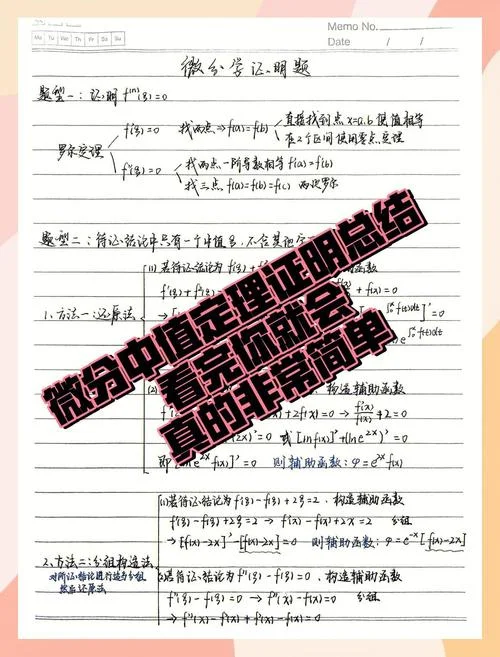 Memo No.
Mo Tu We Th Fr Sa Su
Date / /
微分学证明题
题型一:证明 f⁽ⁿ⁾(ξ)=0
罗尔定理
f'(ξ)=0 找两点⇒f(a)=f(b)
直接找到点 x=a,b 使值相等
在2个区间使用零点定理
f''(ξ)=0
找两点一阶导数相等 f'(a)=f'(b)
找三点 f(a)=f(b)=f(c) 两次罗尔
题型二:待证结论中只有一个中值ξ,不含其他字
1、方法一:还原法
(1) 若待证结论为
函数
微分中值定理证明总结
看完你就会
真的非常简单
(2)
构造辅助函数
+2f(x)=0 → f'(x)/f(x) +2=0
=0 或 [lnf(x)]'+(lne^2x)'=0
即
e^2x f(x)]'=0 则辅助函数:φ=e^2x f(x)
2、方法二:分组构造法
对所证结论进行适当分组
然后还原法
(1)若待证结论为 f'(ξ)-f(ξ)+2ξ=2,构造辅助函数
f'(ξ)-f(ξ)+2ξ=2 → f'(x)-f(x)+2x=2 分组
→[f(x)-2x]'-[f(x)-2x]=0 则辅助函数:φ=e^-x[f(x)-2x]
(2)若待证结论为 f''(ξ)-f(ξ)=0,构造辅助函数
f''(ξ)-f(ξ)=0 → f''(x)-f(x)=0 分组
→ f''(x)-f'(x)+f'(x)-f(x)=0